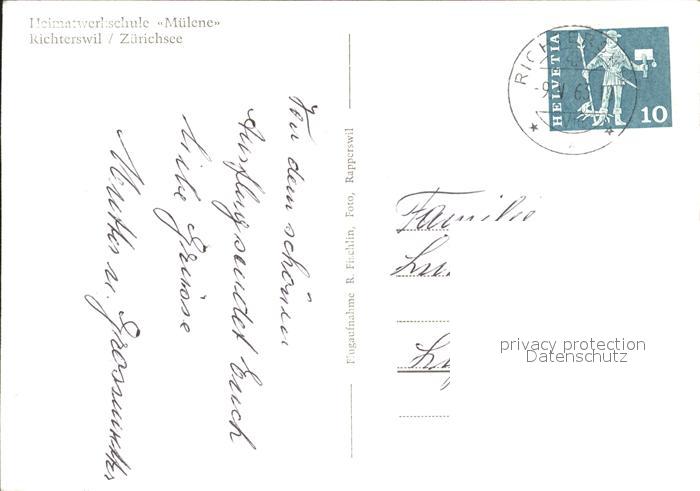 Heimatwerkschule «Mülene»
Richterswil / Zürichsee
Von dem schönen
Ausflug sendet Euch
liebe Grüsse
Mutter u. Grossmutter
Flugaufnahme R. Fischlin, Foto, Rapperswil
HELVETIA
10
Familie
privacy protection
Datenschutz